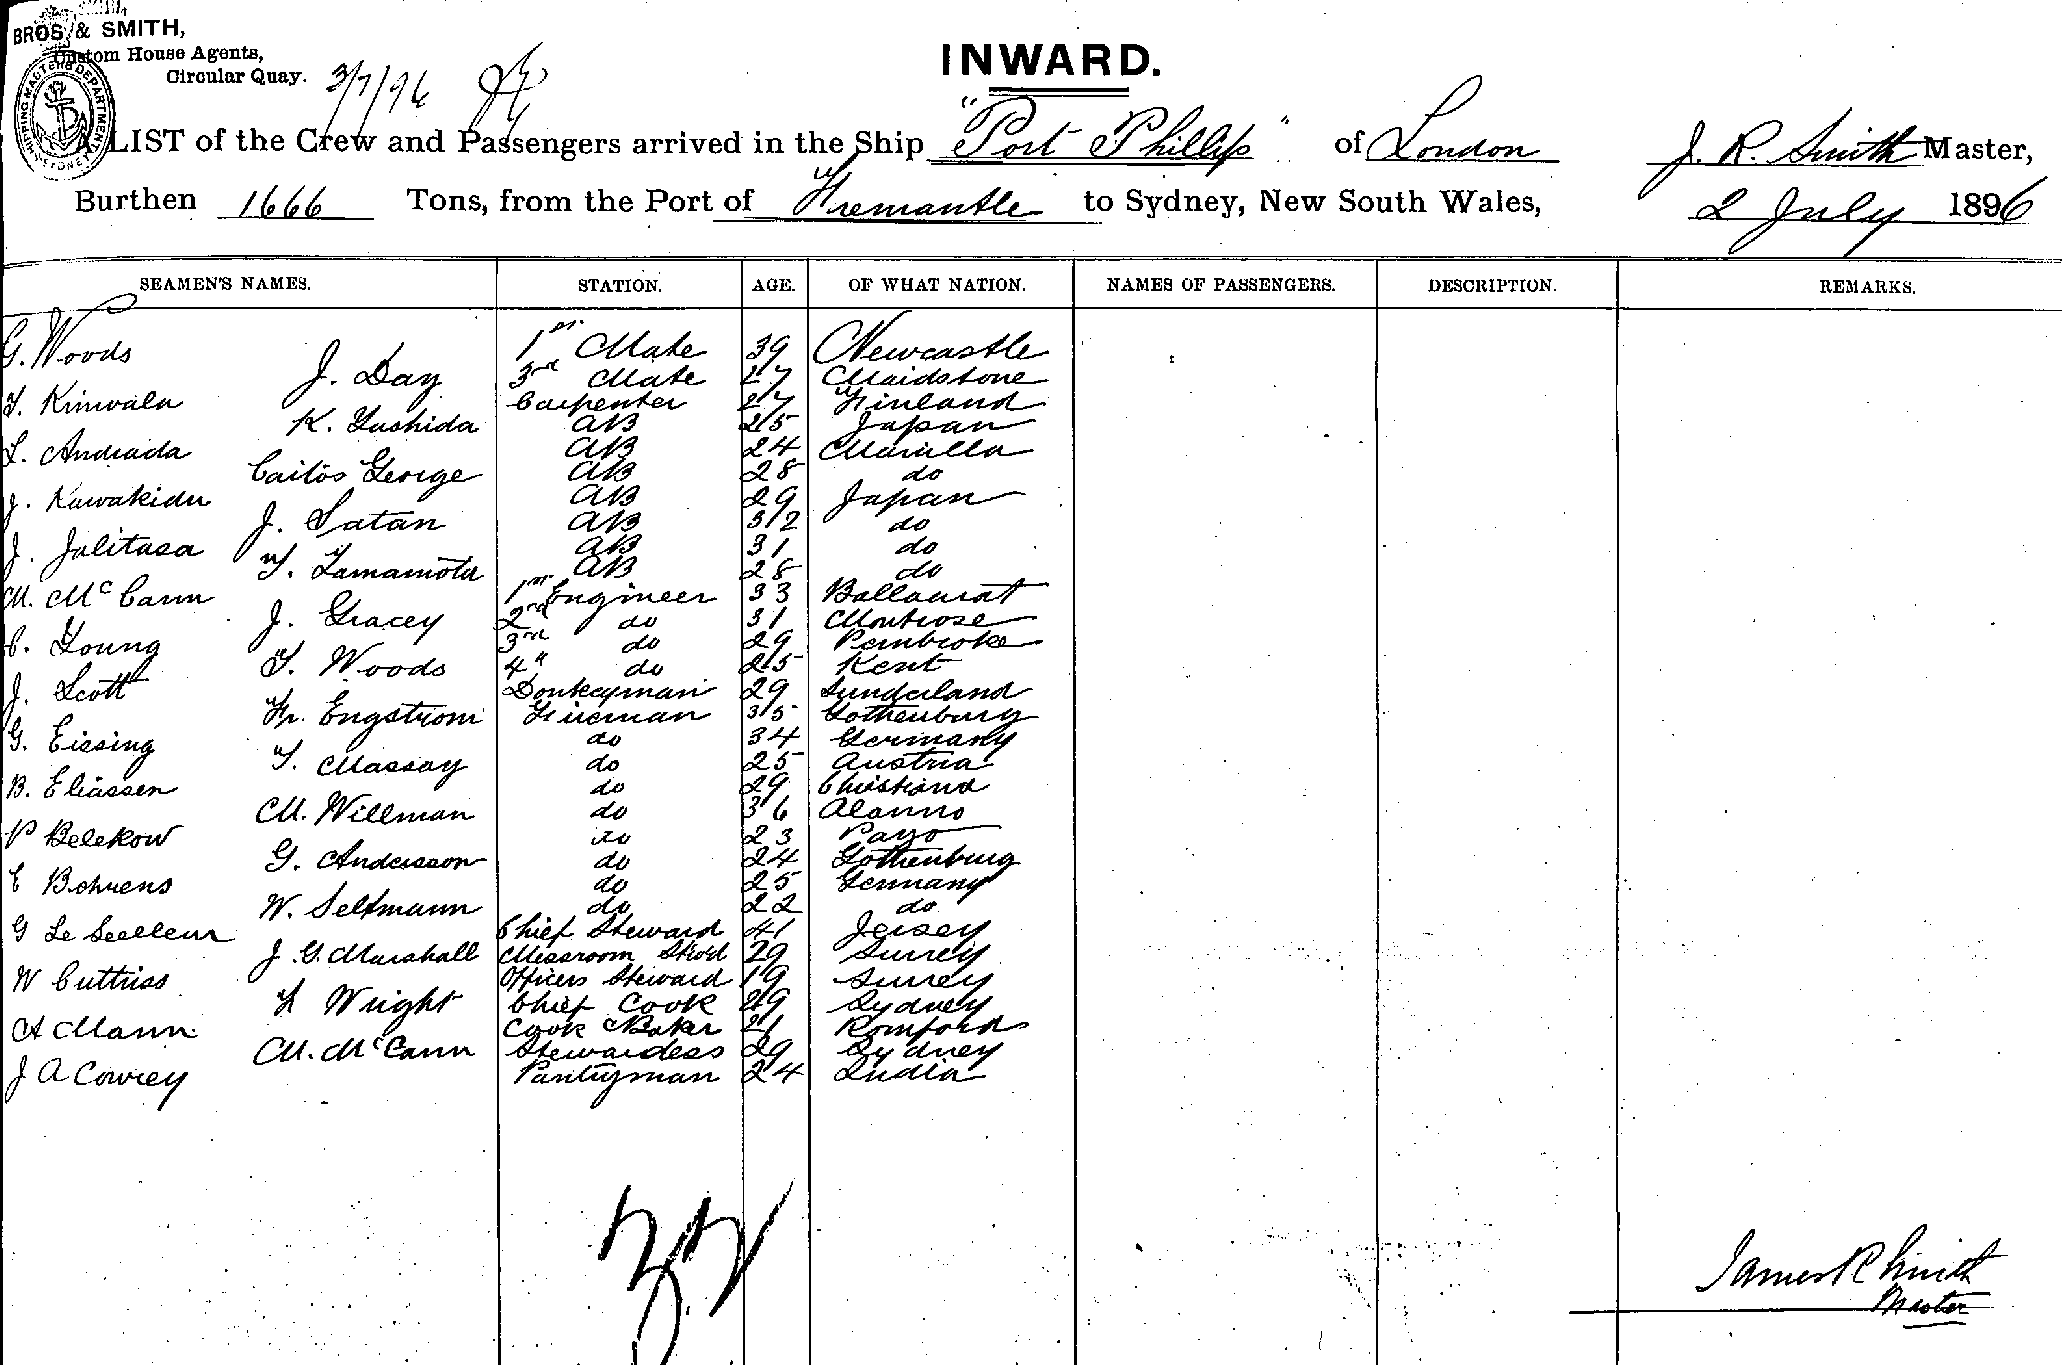 BROS. & SMITH,
Custom House Agents,
Circular Quay. 3/7/96
INWARD.
A LIST of the Crew and Passengers arrived in the Ship "Port Phillip" of London J. R. Smith Master,
Burthen 1666 Tons, from the Port of Fremantle to Sydney, New South Wales, 2 July 1896
SEAMEN'S NAMES. STATION. AGE. OF WHAT NATION. NAMES OF PASSENGERS. DESCRIPTION. REMARKS.
G. Woods 1st Mate 39 Newcastle
J. Day 3rd Mate 27 Maidstone
Kinvala Carpenter 27 Finland
K. Yushida AB 25 Japan
Andrada AB 24 Manilla
Carlos George AB 28 do
J. Kawakidu AB 29 Japan
J. Satan AB 32 do
J. Jalitasa AB 31 do
Y. Yamamota AB 28 do
M. McCann 1st Engineer 33 Ballaarat
J. Gracey 2nd do 31 Montrose
C. Young 3rd do 29 Pembroke
T. Woods 4" do 25 Kent
J. Scott Donkeyman 29 Sunderland
Fr. Engstrom Fireman 35 Gothenburg
G. Eissing do 34 Germany
Massay do 25 Austria
B. Eliassen do 29
M. Willman do 36
P Belekow do 23
G. Andersson do 24 Gothenburg
E Behrens do 25 Germany
W. Seltmann do 22 do
G Le Seelleur Chief Steward 41 Jersey
J. G. Marshall Messroom Stwd 29 Surrey
W Cuttriss Officers Steward 19 Surrey
Wright Chief Cook 29 Sydney
A Mann Cook & Baker 21 Romford
M. McCann Stewardess 29 Sydney
J A Cowrey Pantryman 24 India
James R Smith
Master